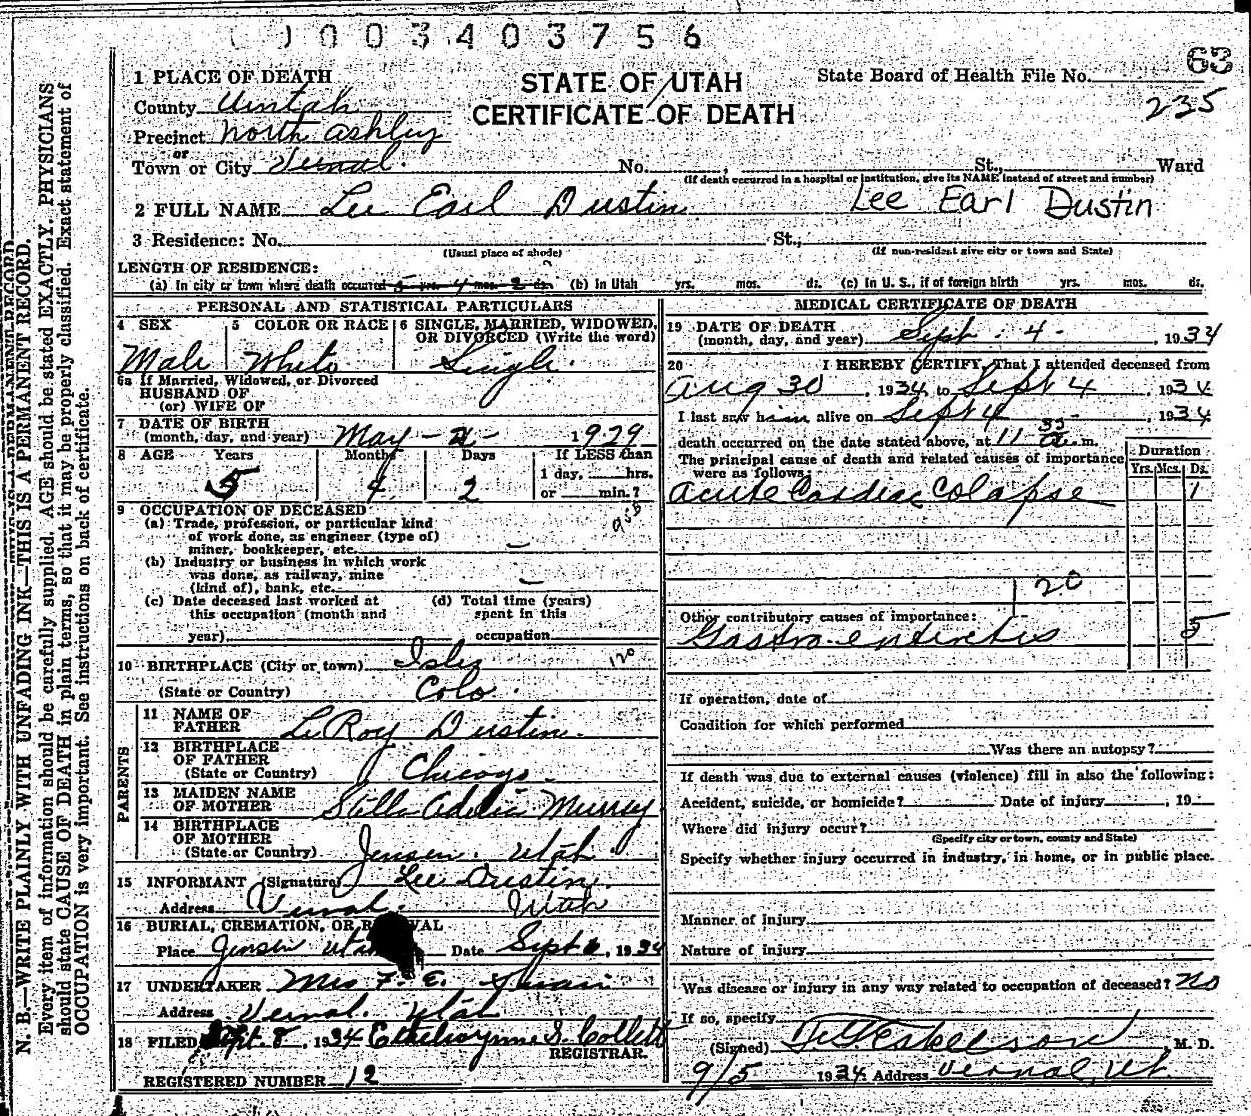 0 0 3 4 0 3 7 5 6
STATE OF UTAH
CERTIFICATE OF DEATH
State Board of Health File No. 63
235
1 PLACE OF DEATH
County Uintah
Precinct North Ashley
or
Town or City Vernal. No. , St., Ward
(If death occurred in a hospital or institution, give its NAME instead of street and number)
2 FULL NAME Lee Earl Dustin Lee Earl Dustin
3 Residence: No. St.,
(Usual place of abode) (If non-resident give city or town and State)
LENGTH OF RESIDENCE:
(a) In city or town where death occurred 5 yrs. 4 mos. 2 ds. (b) In Utah yrs. mos. ds. (c) In U. S., if of foreign birth yrs. mos. ds.
PERSONAL AND STATISTICAL PARTICULARS
4 SEX Male
5 COLOR OR RACE White
6 SINGLE, MARRIED, WIDOWED, OR DIVORCED (Write the word) Single.
6a If Married, Widowed, or Divorced
HUSBAND OF
(or) WIFE OF
7 DATE OF BIRTH
(month, day, and year) May - 2 - 1929
8 AGE Years Months Days If LESS than
5 4 2 1 day, hrs.
or min.?
9 OCCUPATION OF DECEASED
(a) Trade, profession, or particular kind
of work done, as engineer (type of)
miner, bookkeeper, etc. —
(b) Industry or business in which work
was done, as railway, mine
(kind of), bank, etc. —
(c) Date deceased last worked at (d) Total time (years)
this occupation (month and spent in this
year) occupation
10 BIRTHPLACE (City or town) Isles 120
(State or Country) Colo.
PARENTS
11 NAME OF
FATHER LeRoy Dustin.
12 BIRTHPLACE
OF FATHER
(State or Country) Chicago.
13 MAIDEN NAME
OF MOTHER Stella Adelia Murrey.
14 BIRTHPLACE
OF MOTHER
(State or Country) Jensen. Utah.
15 INFORMANT (Signature) Lee Dustin.
Address Vernal. Utah
16 BURIAL, CREMATION, OR VAL
Place Jensen Date Sept 6, 1934
17 UNDERTAKER Mrs F. E. Swain
Address Vernal. Utah
18 FILED Sept 8, 1934 Ethelwynne S. Collett
REGISTRAR.
REGISTERED NUMBER 12
MEDICAL CERTIFICATE OF DEATH
19 DATE OF DEATH
(month, day, and year) Sept. 4 - , 1934
20 I HEREBY CERTIFY, That I attended deceased from
Aug 30 , 1934, to Sept 4 , 1934
I last saw him alive on Sept 4 - , 1934
death occurred on the date stated above, at 11 35 a. m.
The principal cause of death and related causes of importance
were as follows:
Duration
Yrs. Mos. Ds.
Acute Cardiac Colapse 1
120
Other contributory causes of importance:
Gastro-entiretus 5
If operation, date of
Condition for which performed
Was there an autopsy?
If death was due to external causes (violence) fill in also the following:
Accident, suicide, or homicide? Date of injury , 19
Where did injury occur?
(Specify city or town, county and State)
Specify whether injury occurred in industry, in home, or in public place.
Manner of injury
Nature of injury
Was disease or injury in any way related to occupation of deceased? No
If so, specify
(Signed) , M. D.
9/5 1934 Address Vernal, Ut
N. B.—WRITE PLAINLY WITH UNFADING INK—THIS IS A PERMANENT RECORD.
Every item of information should be carefully supplied. AGE should be stated EXACTLY. PHYSICIANS
should state CAUSE OF DEATH in plain terms, so that it may be properly classified. Exact statement of
OCCUPATION is very important. See instructions on back of certificate.